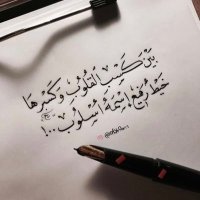 بَيْنَ كَسْبِ القُلُوبِ وَكَسْرِهَا
خَيْطٌ رَفِيعٌ اِسْمُهُ أُسْلُوب ..!